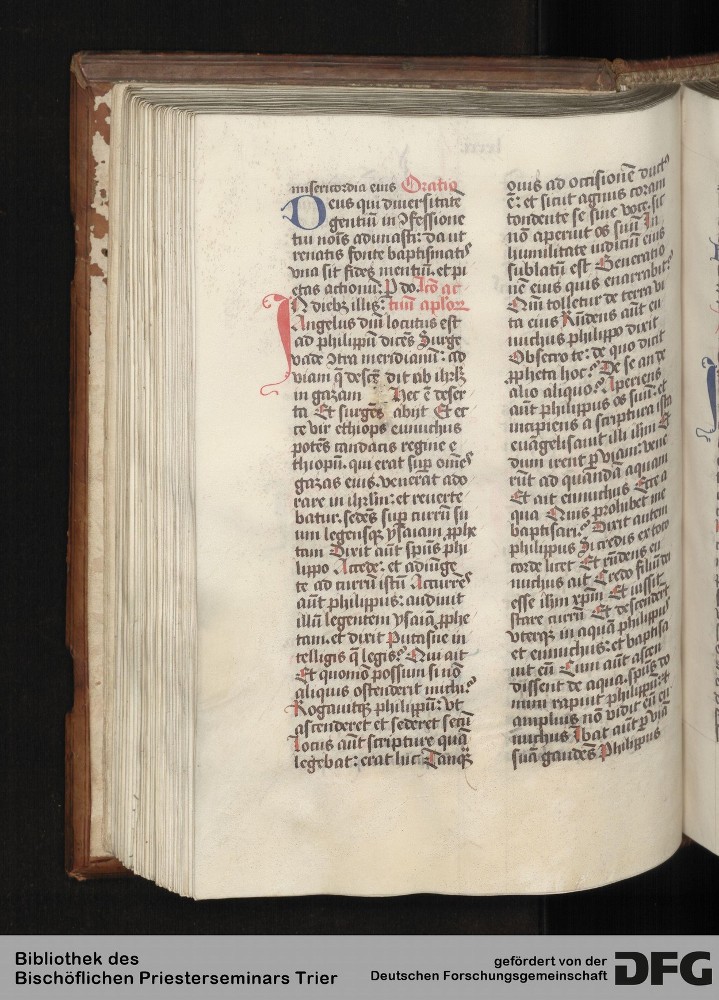 misericordia eius Oratio
Deus qui diuersitate
gentiū in ↄfessione
tui noīs adunasti: da ut
renatis fonte baptismatꝭ
vna sit fides mentiū. et pi
etas actionū: P do. Lc̄o ac
In diebꝫ illis: tuū apl'oꝝ
Angelus dn̄i locutus est
ad philippū dicēs Surge
vade ↄtra meridianū: ad
viam q̄ descēdit ab ihrl̄ꝫ
in gazam Hec ē deser
ta Et surgēs abijt Et ec
ce vir ethiops eunuchus
potēs candacis regine e
thiopū. qui erat suꝑ om̄eꝭ
gazas eius. venerat ado
rare in ihrl̄m: et reuerte
batur. sedēs suꝑ currū su
um legensqꝫ ysaiam ꝓphe
tam Dixit aūt spūs phi
lippo Accede: et adiūge
te ad currū istū Accurrēs
aūt philippus: audiuit
illū legentem ysaiā ꝓphe
tam. et dixit Putasne in
telligis q̄ legis? Qui ait
Et quomō possum si nō
aliquis ostenderit michi?
Rogauitqꝫ philippū: vt
ascenderet et sederet secū
Locus aūt scripture quā
legebat: erat hic Tanqꝫ
ouis ad occisionē ductꝰ
ē: et sicut agnus coram
tondente se sine voce. sic
nō aperuit os suū In
humilitate iudiciū eius
sublatū est Generatio
nē eius quis enarrabit?
Qm̄ tolletur de terra vi
ta eius Rn̄dens aūt eu
nuchus philippo dixit
Obsecro te: de quo dicit
ꝓpheta hoc? De se an de
alio aliquo? Aperiens
aūt philippus os suū: et
incipiens a scriptura ista
euāgelisauit illi ihm̄ Et
dum irent ꝑ viam: vene
rūt ad quandā aquam
Et ait eunuchus Ecce a
qua Quis prohibet me
baptisari? Dixit autem
philippus Si credis ex toto
corde licet Et rn̄dens eu
nuchus ait Credo filiū dei
esse ihm xpm̄ Et iussit
stare currū Et descenderūt
vterqꝫ in aquā philippus
et eunuchus: et baptisa
uit eū Cum aūt ascen
dissent de aqua. spūs do
mini rapuit philippū: et
amplius nō vidit eū eu
nuchus Ibat aūt ꝑ viā
suā gaudēs Philippus
Bibliothek des
Bischöflichen Priesterseminars Trier
gefördert von der
Deutschen Forschungsgemeinschaft
DFG